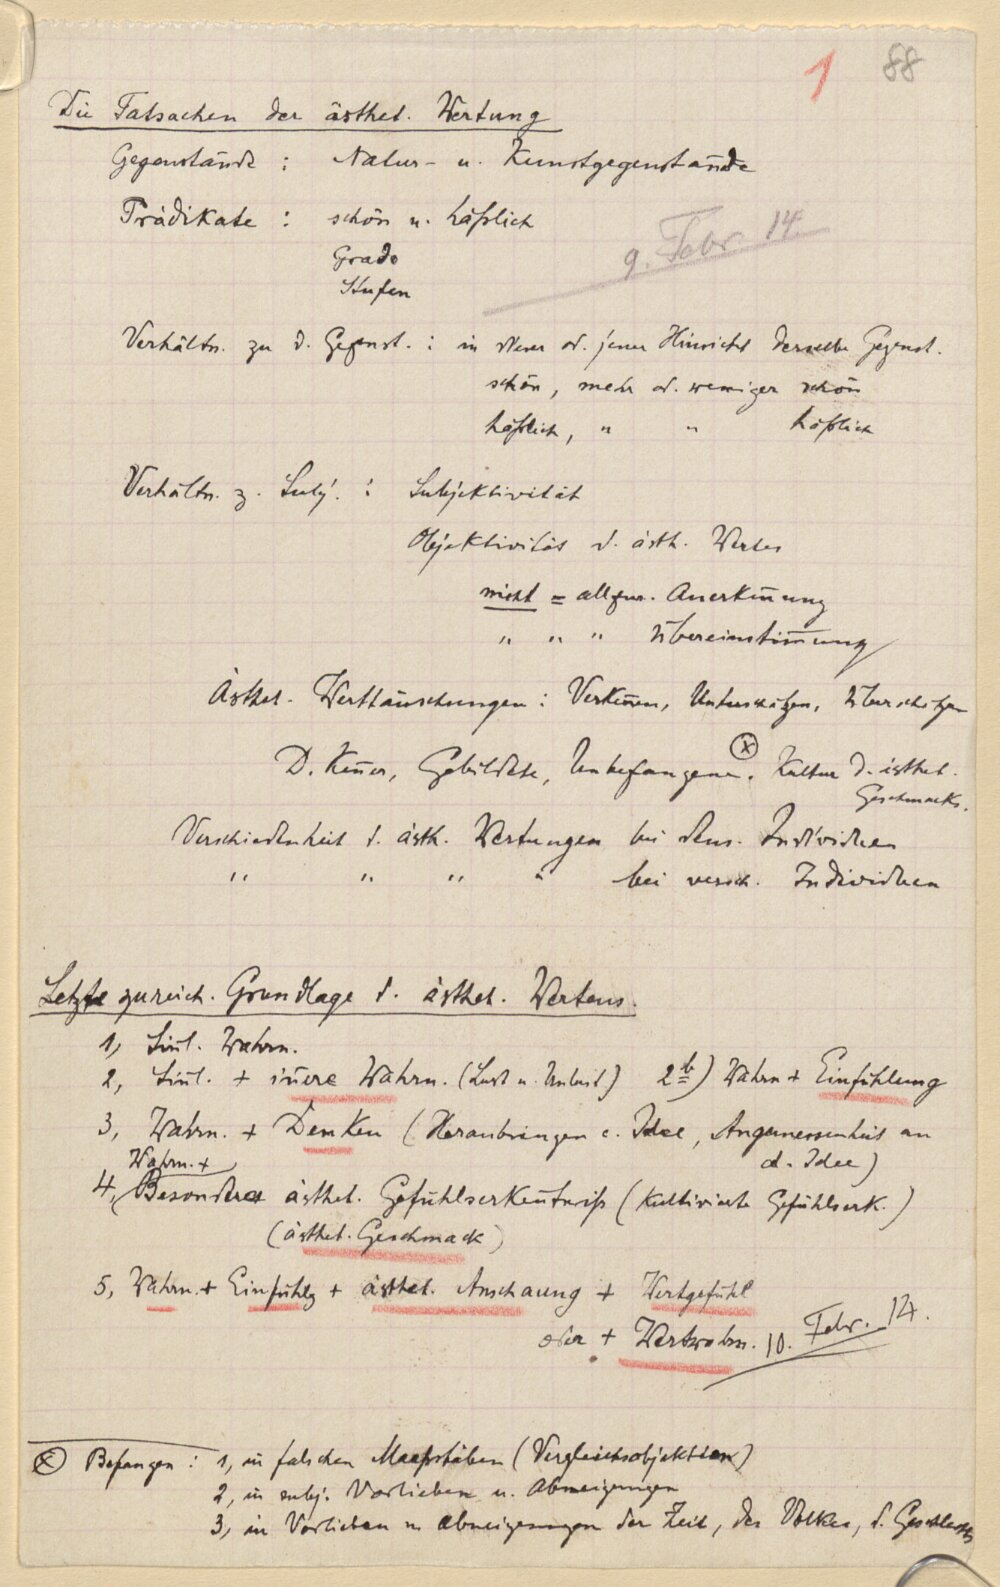 1 88
Die Tatsachen der ästhet. Wertung
Gegenstände : Natur- u. Kunstgegenstände
Prädikate : schön u. häßlich
9. Febr. 14.
Grade
Stufen
Verhältn. zu d. Gegenst. : in dieser od. jener Hinsicht derselbe Gegenst.
schön, mehr od. weniger schön
häßlich, " " häßlich
Verhältn. z. Subj. : Subjektivität
Objektivität d. ästh. Wertes
nicht = allgem. Anerkeñung
" " " Übereinstim̄ung
Ästhet. Werttäuschungen : Verkeñen, Unterschätzen, Überschätzen
D. Keñer, Gebildete, Unbefangene. ⊗ Kultur d. ästhet.
Geschmacks.
Verschiedenheit d. ästh. Wertungen bei dems. Individuen
" " " " bei versch. Individuen
Letzte zureich. Grundlage d. ästhet. Wertens.
1, Siñl. Wahrn.
2, Siñl. + iñere Wahrn. (Lust u. Unlust) 2b) Wahrn + Einfühlung
3, Wahrn. + Denken (Heranbringen e. Idee, Angemessenheit an
d. Idee)
Wahrn. +
4, Besondere ästhet. Gefühlserkeñtniß (kultivierte Gefühlserk.)
(ästhet. Geschmack)
5, Wahrn. + Einfühlg + ästhet. Anschauung + Wertgefühl
oder + Wertwahrn. 10. Febr. 14.
⊗ Befangen : 1, in falschen Maaßstäben (Vergleichsobjekten)
2, in subj. Vorlieben u. Abneigungen
3, in Vorlieben u Abneigungen der Zeit, des Volkes, d. Geschlechts